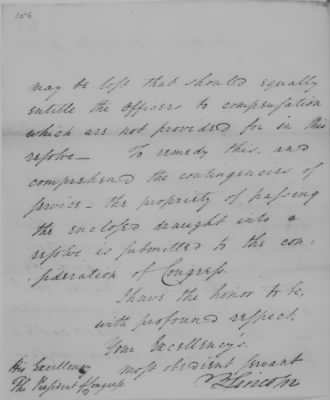 may be lost that should equally
entitle the officers to compensation
which are not provided for in this
resolve— To remedy this, and
comprehend the contingencies of
service— the propriety of passing
the enclosed draught into a
resolve is submitted to the con-
sideration of Congress.
I have the honor to be,
with profound respect,
Your Excellency's
most obedient servant
B Lincoln
His Excellency
The President of Congress